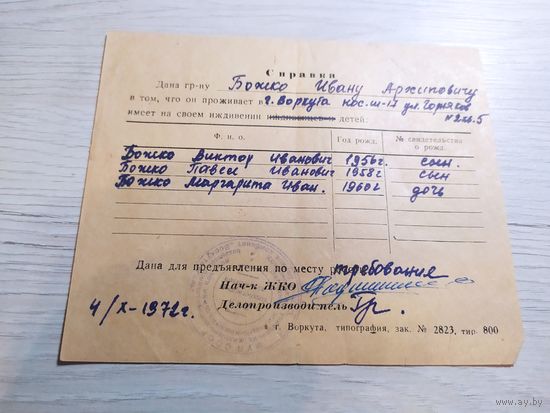 Справка
Дана гр-ну Божко Ивану Архиповичу
в том, что он проживает в г. Воркута пос. ш-17 ул. Горняков
имеет на своем иждивении иждивенцев и детей: №2 кв. 5
Ф. и. о. Год рожд. № свидетельства о рожд.
Божко Виктор Иванович 1956г. сын.
Божко Павел Иванович 1958г сын
Божко Маргарита Иван. 1960г дочь
Дана для предъявления по месту требования
Нач-к ЖКО
4/X-1972г. Делопроизводитель
г. Воркута, типография, зак. № 2823, тир. 800
av.by